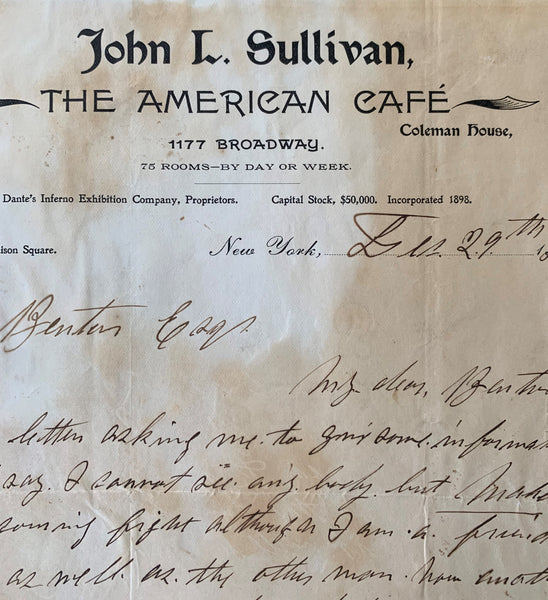 John L. Sullivan,
THE AMERICAN CAFÉ
Coleman House,
1177 BROADWAY.
75 ROOMS—BY DAY OR WEEK.
Dante's Inferno Exhibition Company, Proprietors. Capital Stock, $50,000. Incorporated 1898.
ison Square.
New York, 29th 18
Esqr
My dear,
letter asking me to give some informa
say. I cannot see any body but
coming fight although I am a friend
as well as the other man. now anoth